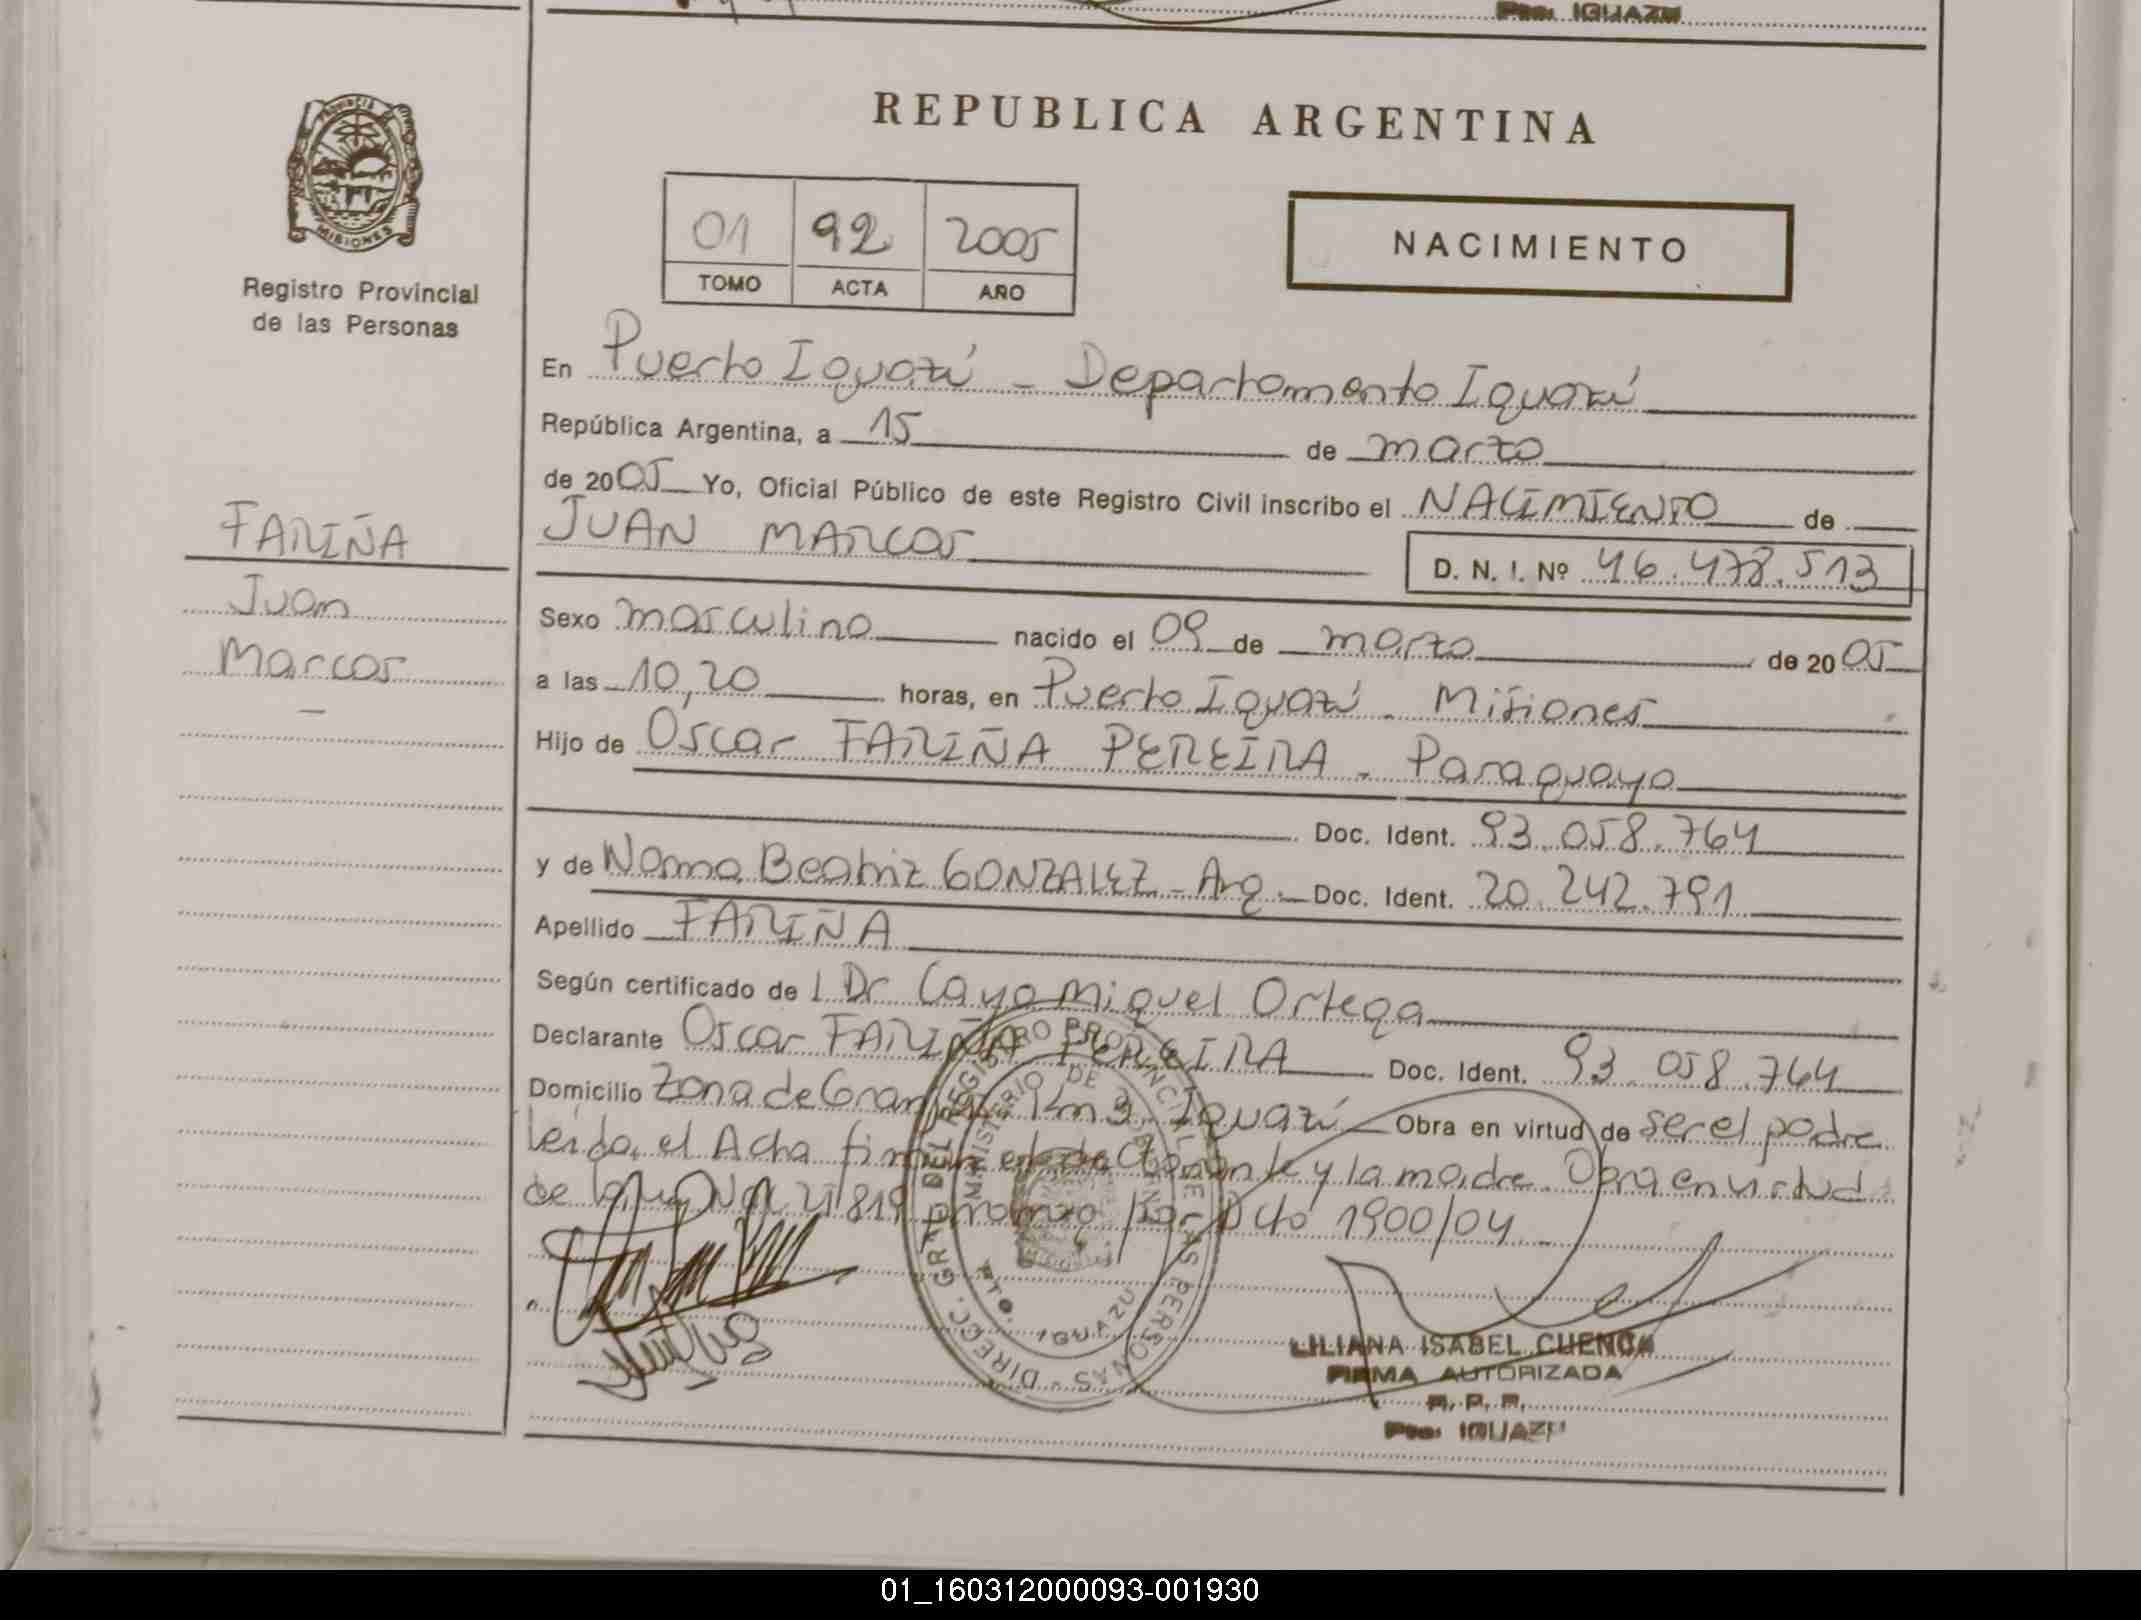 Pto: IGUAZU
REPUBLICA ARGENTINA
PROVINCIA
MISIONES
Registro Provincial
de las Personas
01 92 2005
TOMO ACTA AÑO
NACIMIENTO
En Puerto Iguazú - Departamento Iguazú
República Argentina, a 15 de marzo
de 2005 Yo, Oficial Público de este Registro Civil inscribo el NACIMIENTO de
JUAN MARCOS
D. N. I. Nº 46.478.513
FARIÑA
Juan
Marcos
-
Sexo masculino nacido el 09 de marzo de 2005
a las 10,20 horas, en Puerto Iguazú - Misiones
Hijo de Oscar FARIÑA PEREIRA - Paraguayo
Doc. Ident. 93.058.764
y de Norma Beatriz GONZALEZ - Arg. Doc. Ident. 20.242.791
Apellido FARIÑA
Según certificado de l Dr Cayo Miguel Ortega
Declarante Oscar FARIÑA PEREIRA Doc. Ident. 93.058.764
Domicilio Zona de Granjas Km 3 Iguazú Obra en virtud de ser el padre
leída el Acta firman el declarante y la madre. Obra en virtud
de la Ley Nac 21819 por Dcto 1900/04 -
DIRECC. GRTE DEL REGISTRO PROVINCIAL DE LAS PERSONAS
MINISTERIO DE
PTO. IGUAZU
LILIANA ISABEL CUENCA
FIRMA AUTORIZADA
R. P. P.
Pto: IGUAZU
01_160312000093-001930